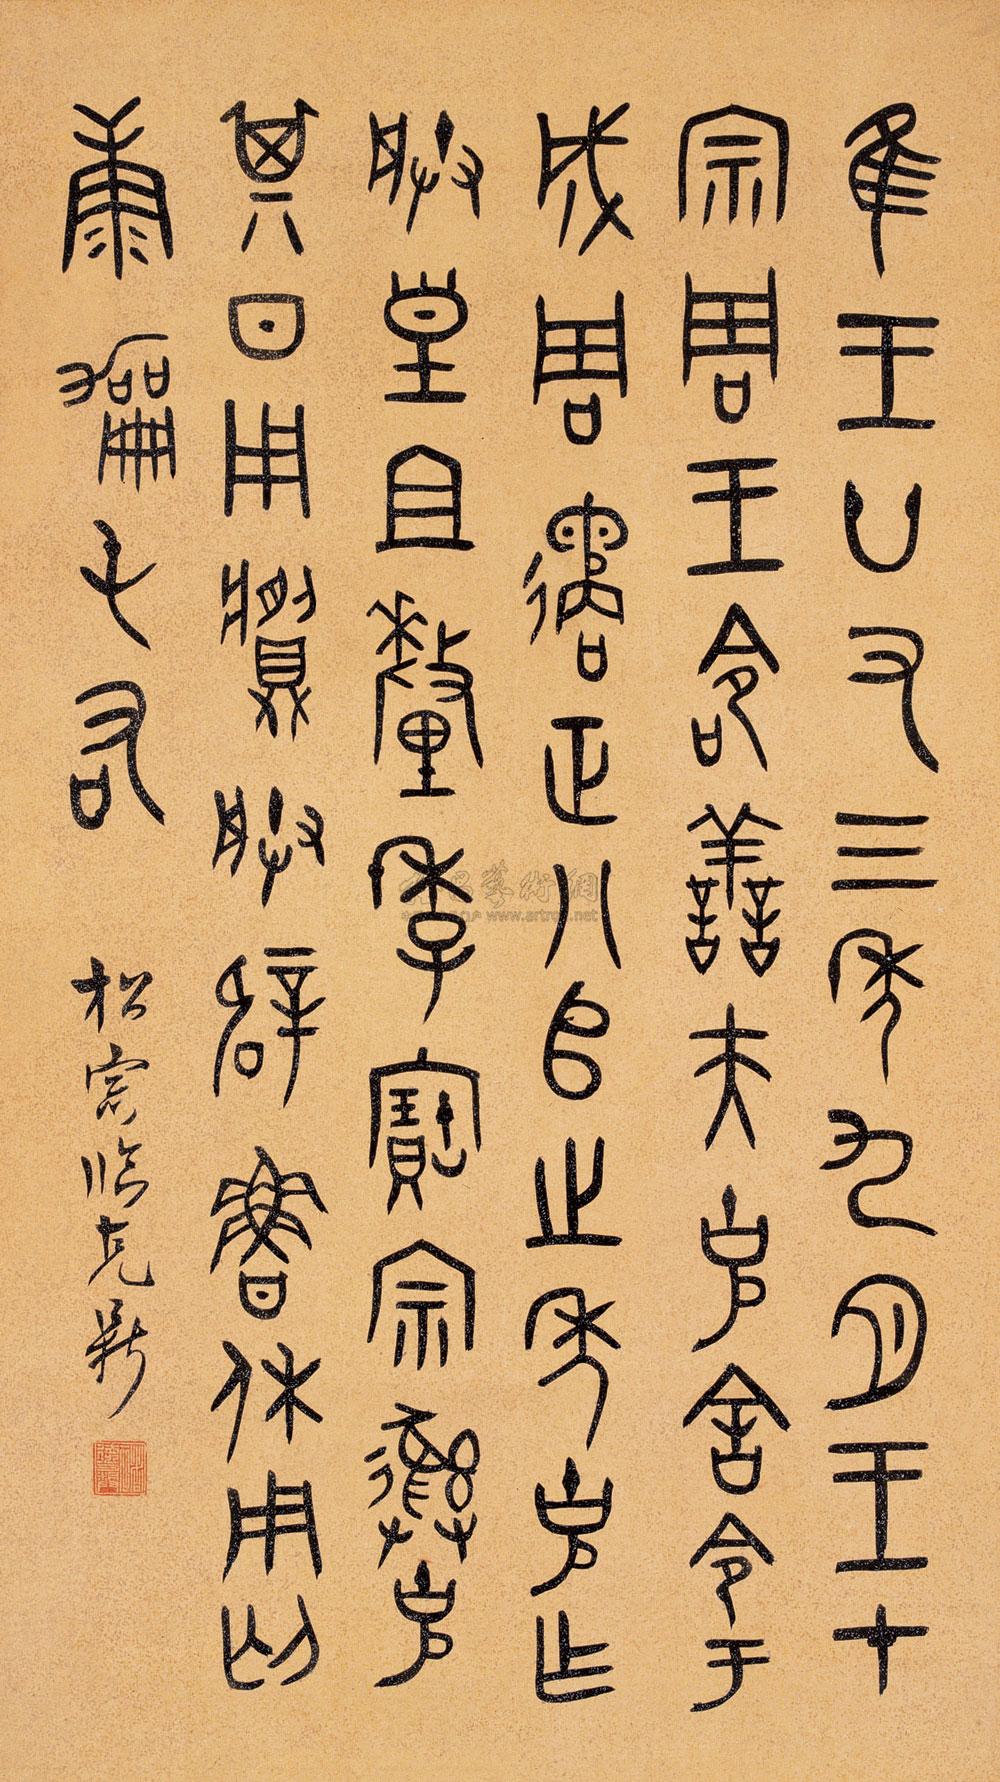 隹王廿又三年九月王才
宗周王命善夫克舍令于
成周遹正八𠂤之年克乍
朕皇且釐季寶宗彝克
其日用𩰬朕辟魯休用匄
康勵屯右
松窗臨克鼎
雅昌藝術網
www.artron.net